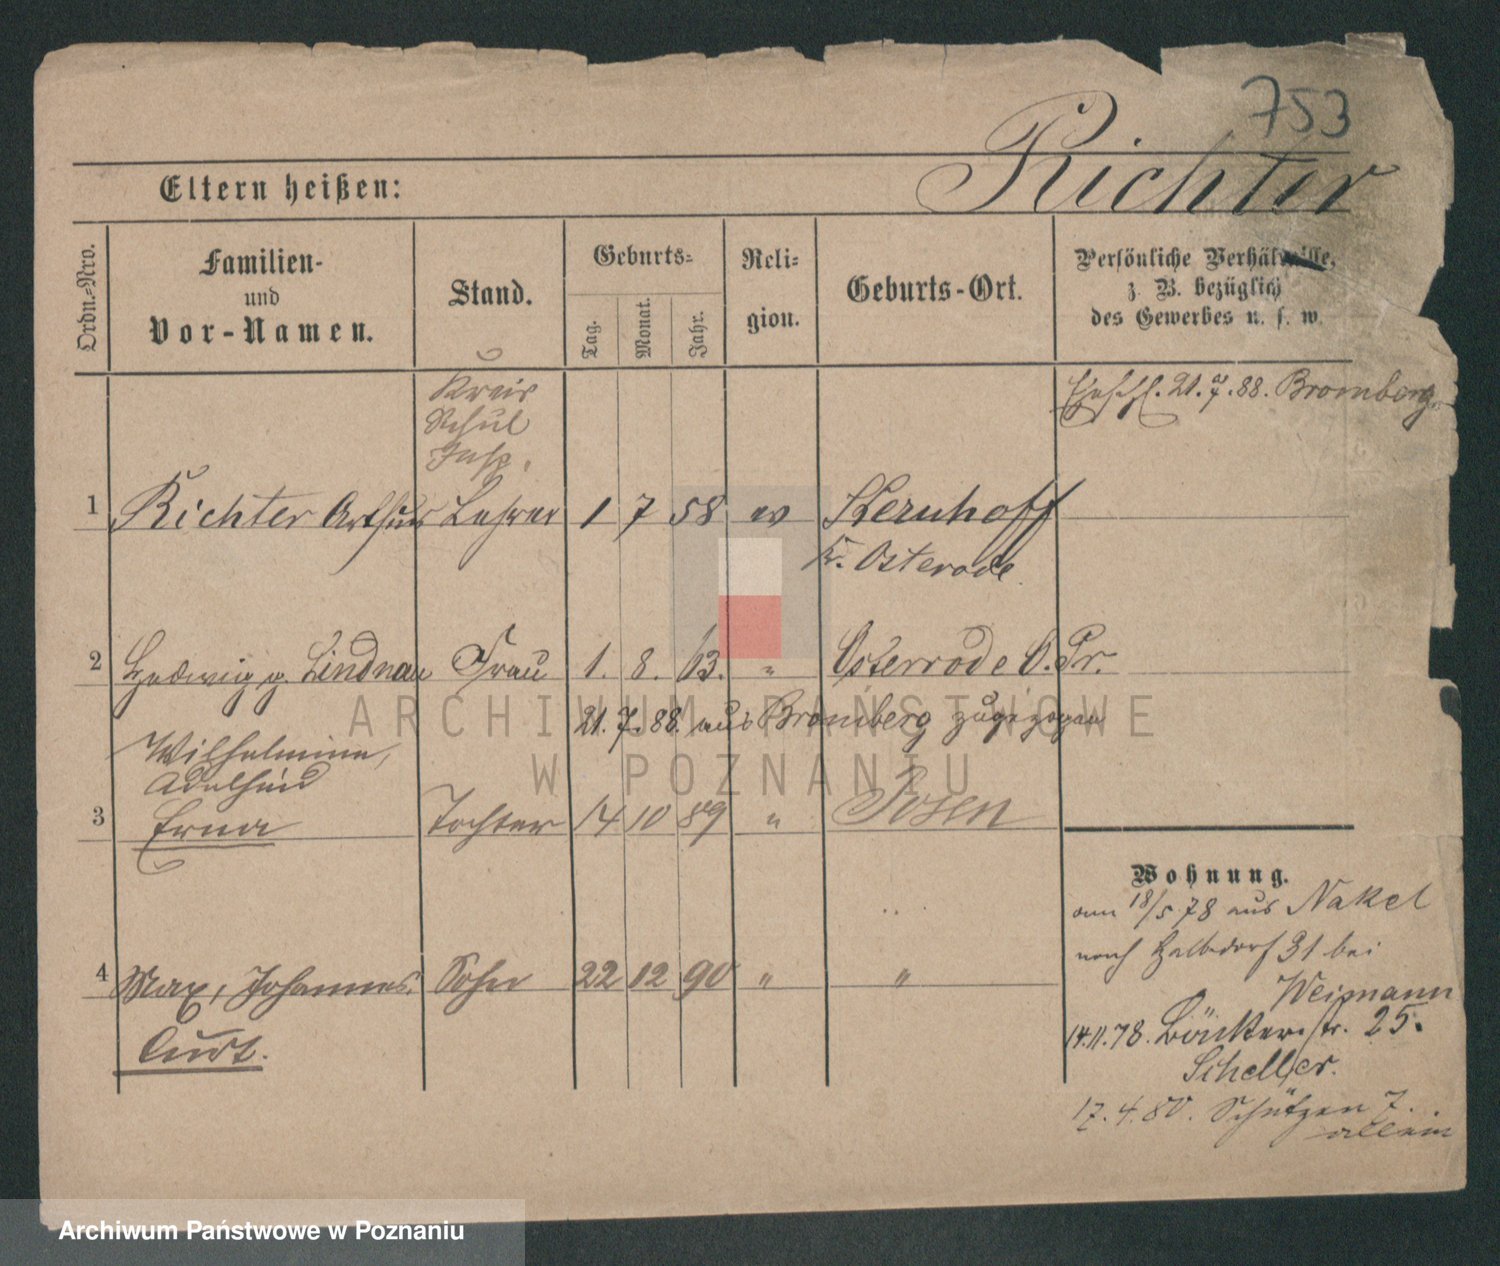 753
Richter
Eltern heißen:
Ordn.-Nro.
Familien-
und
Vor-Namen.
Stand.
Geburts-
Tag.
Monat.
Jahr.
Reli-
gion.
Geburts-Ort.
Persönliche Verhältnisse,
z. B. bezüglich
des Gewerbes u. s. w.
Kreis
Schul
Insp.
21.7.88. Bromberg
1 Richter Arthur Lehrer 1 7 58 ev Sternhoff
Kr. Osterode
2 Hedwig g. Lindnau Frau 1. 8. 63. " Osterrode O. Pr.
21. 7. 88. aus Bromberg zugezogen
Wilhelmine,
Adelheid
3 Erna Tochter 14 10 89 " Posen
Wohnung.
am 18/5 78 aus Nakel
nach Halbdorf 31 bei
Weimann
4 Max, Johannes Sohn 22 12 90 " "
Curt.
14.11.78. Bäckerstr. 25.
Scheller.
17.4.80. Schützen 7.
allein
ARCHIWUM PAŃSTWOWE
W POZNANIU
Archiwum Państwowe w Poznaniu